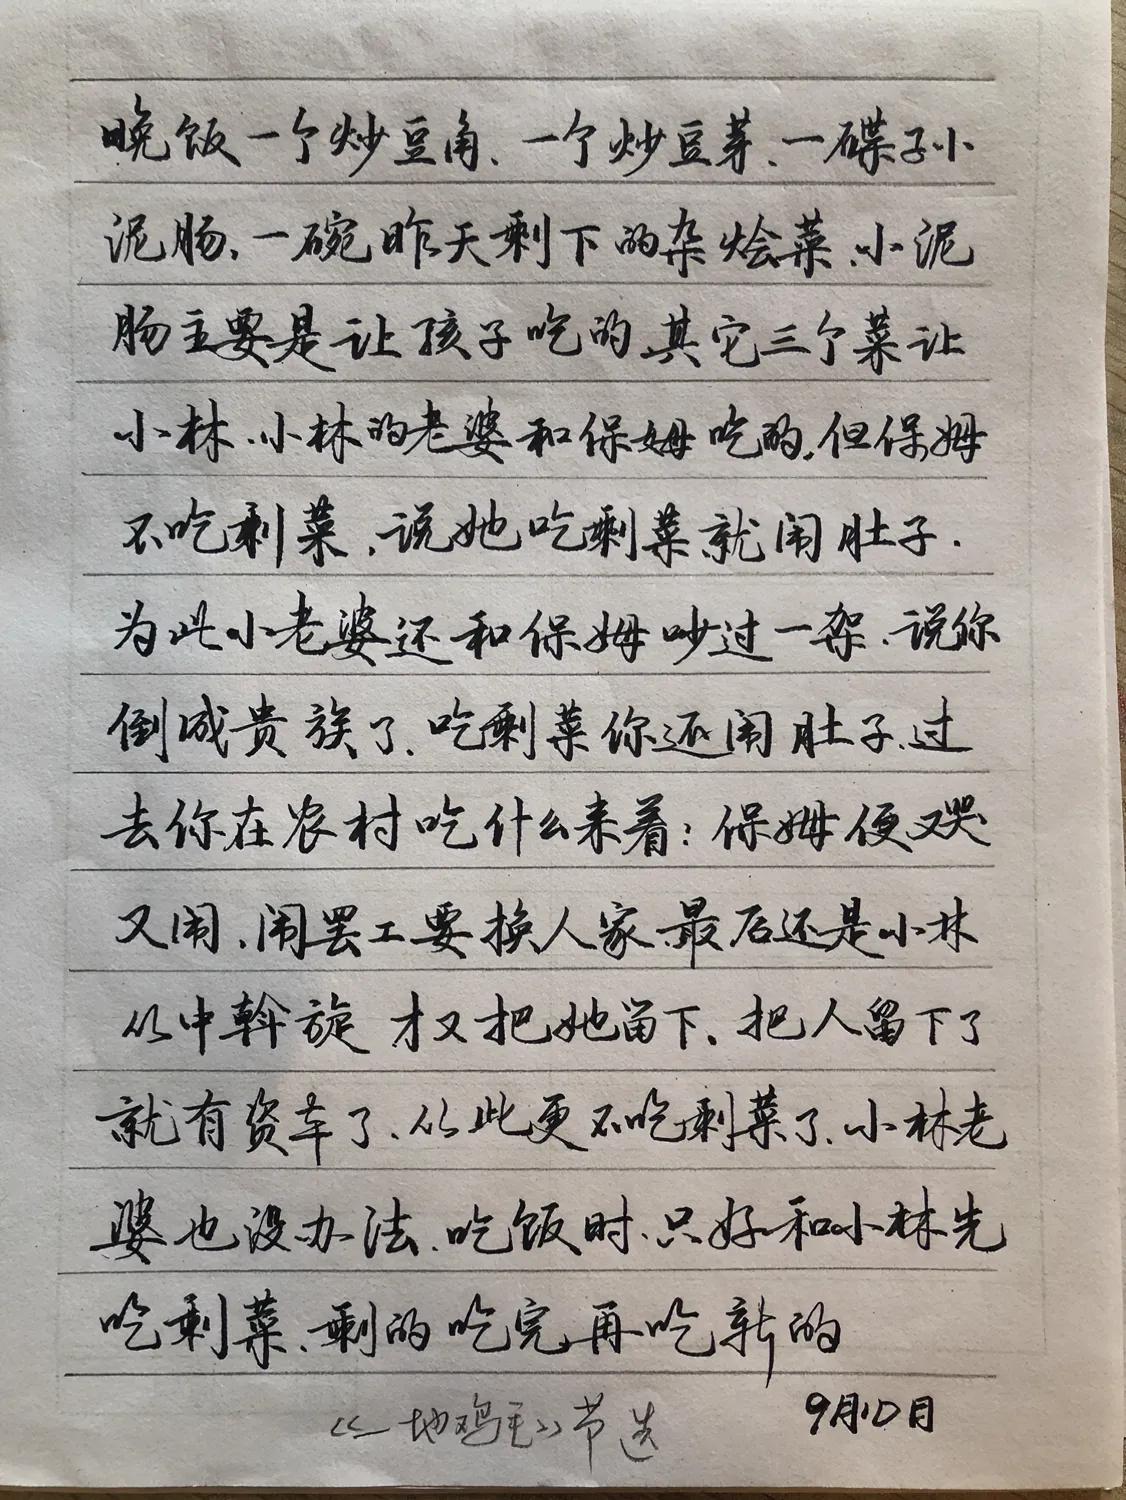 晚饭一个炒豆角、一个炒豆芽、一碟子小
泥肠、一碗昨天剩下的杂烩菜、小泥
肠主要是让孩子吃的、其它三个菜让
小林、小林的老婆和保姆吃的、但保姆
不吃剩菜、说她吃剩菜就闹肚子.
为此小老婆还和保姆吵过一架、说你
倒成贵族了、吃剩菜你还闹肚子、过
去你在农村吃什么来着：保姆便又哭
又闹、闹罢工要换人家、最后还是小林
从中斡旋 才又把她留下、把人留下了
就有资本了、从此更不吃剩菜了、小林老
婆也没办法、吃饭时、只好和小林先
吃剩菜、剩的吃完再吃新的
《一地鸡毛》节选 9月10日